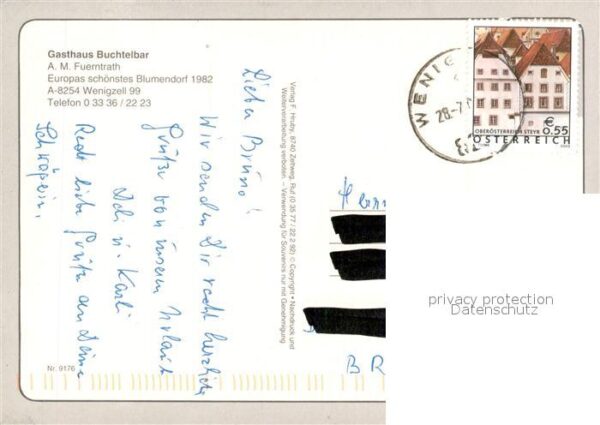 Gasthaus Buchtelbar
A. M. Fuerntrath
Europas schönstes Blumendorf 1982
A-8254 Wenigzell 99
Telefon 0 33 36 / 22 23
Lieber Bruno!
Wir senden Dir recht herzliche
Grüße von unserem Urlaub
Didi u. Karli
Recht liebe Grüße an Deine
Verlag F. Hruby, 8740 Zeltweg, Ruf (0 35 77 / 22 2 92) © Copyright • Nachdruck und
Weiterverarbeitung verboten – Verwendung für Souvenirs nur mit Genehmigung
Nr. 9176
WENIG
28.-7.
€
0,55
OBERÖSTERREICH STEYR
ÖSTERREICH
Herrn
BR
privacy protection
Datenschutz